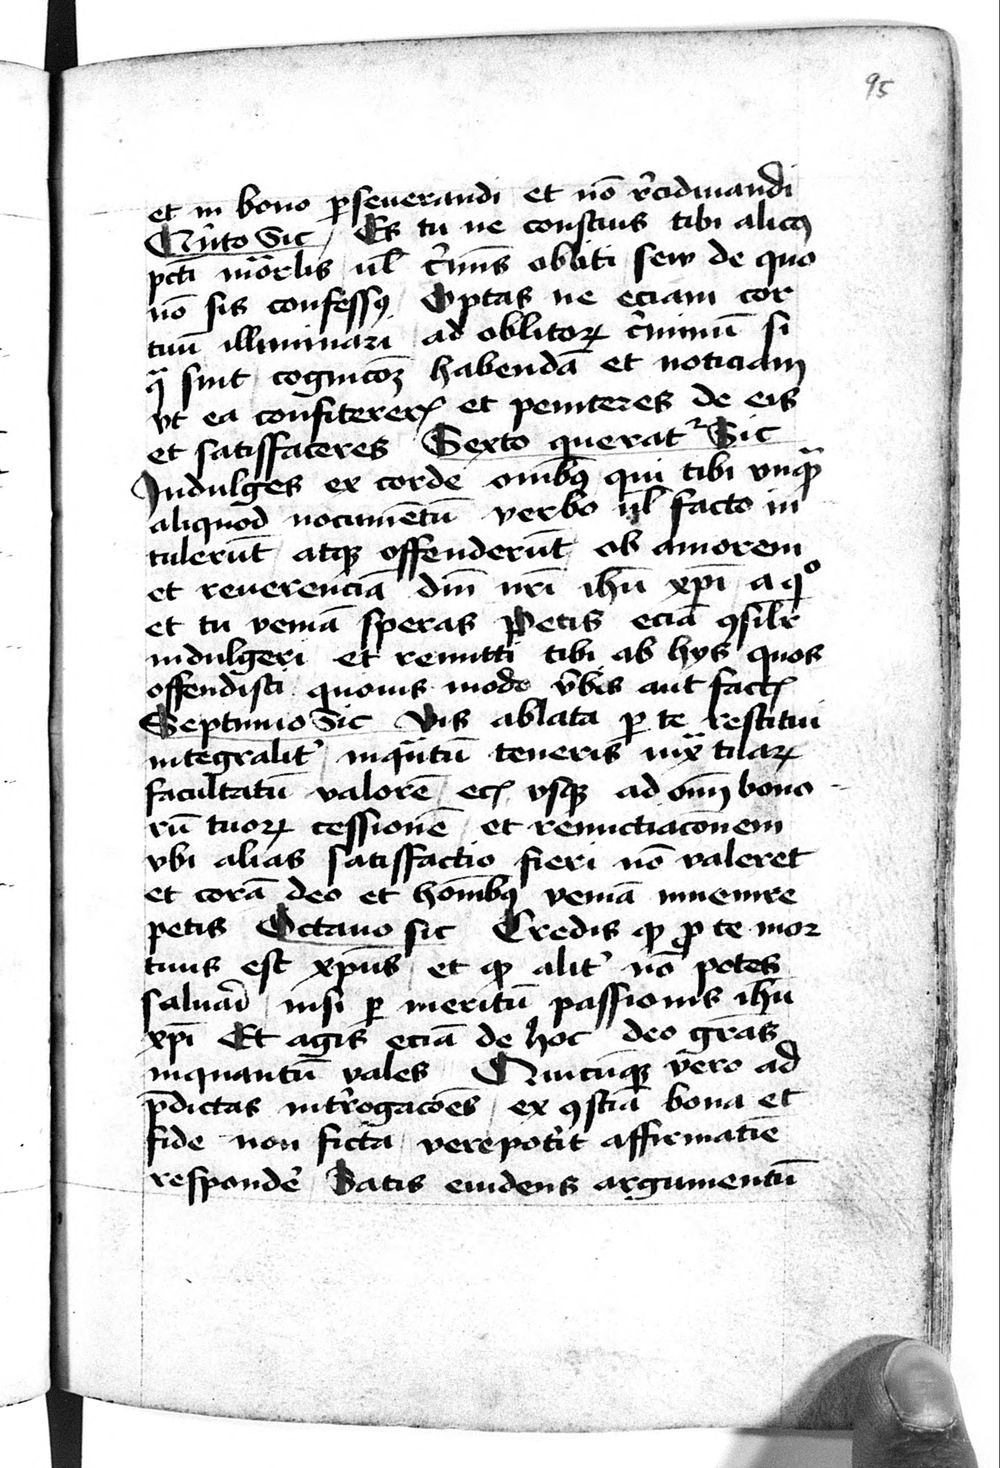 95
et in bono ꝑseuerandi et nō r̄cidiuandi
Qn̄to Sic Es tu ne conscius tibi alicꝰ
pcti mōrlis ul̄ c̄mīs obliti seu de quo
nō sis confessꝰ Optas ne eciam cor
tuū illuminari ad oblitoꝝ c̄minū si
q̄ sint cognicōꝫ habendā et noticiam
vt ea confitereris et peniteres de eis
et satisfaceres Sexto querat᷑ Sic
Indulges ex corde om̄ibꝰ qui tibi vnꝙ̄
aliquod nocumētū verbo ul̄ facto in
tulerūt atqꝫ offenderūt ob amorem
et reuerenciā dn̄i nr̄i ihū xp̄i a qͦ
et tu veniā speras Petis eciā ꝯsilr̄
indulgeri et remitti tibi ab hys quos
offendisti quouis modo v̄bis aut factꝭ
Septimo Sic Vis ablata ꝑ te restitui
integralit᷑ inqͣntū teneris iuxͣ tuaꝝ
facultatū valorē ecꝭ vsqꝫ ad om̄ bono
rū tuoꝝ cessionē et renunctiacōnem
vbi alias satisfactio fieri nō valeret
et corā deo et hōm̄ibꝰ veniā inuenire
petis Octauo sic Credis ꝙ ꝓ te mor
tuus est xp̄us et ꝙ alit᷑ nō potes
saluari nisi ꝑ meritū passionis ihū
xp̄i Et agis eciā de hoc deo grās
inquantū vales Quicūqꝫ vero ad
p̄dictas int̄rogacōes ex ꝯsciā bona et
fide non ficta vere pot̄it affirmatīe
respondē Satis euidens argumentū